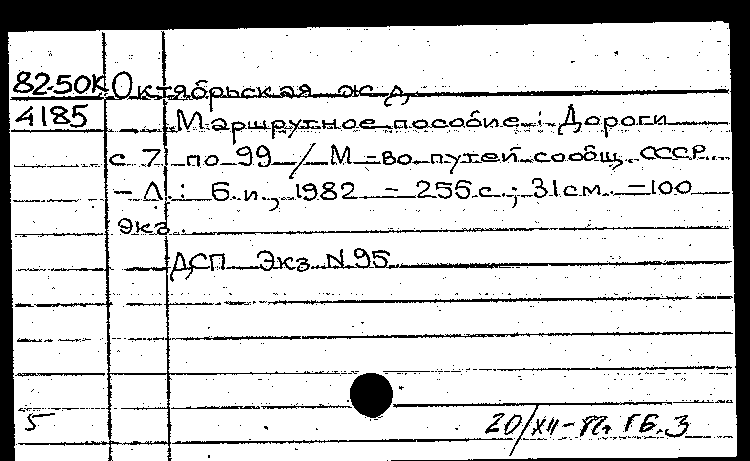 82-50К Октябрьская ж д
4185 Маршрутное пособие : Дороги
с 71 по 99 / М-во путей сообщ. СССР.
– Л. : Б. и., 1982. – 256 с. ; 31 см. – 100
экз.
ДСП Экз N 95
5
20/XII- ГБ. З